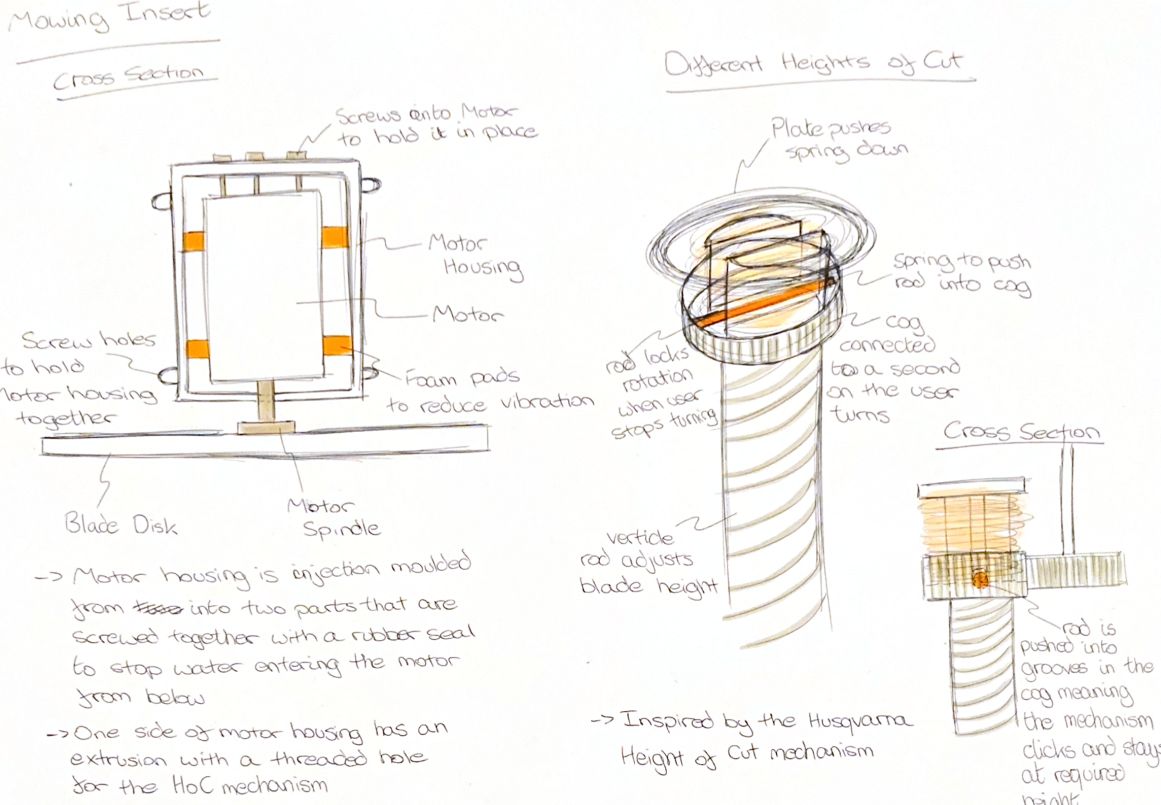 Mowing Insert
Cross Section
Screws onto Motor
to hold it in place
Motor
Housing
Motor
Screw holes
to hold
Motor housing
together
Foam pads
to reduce vibration
Blade Disk
Motor
Spindle
-> Motor housing is injection moulded
from into two parts that are
screwed together with a rubber seal
to stop water entering the motor
from below
-> One side of motor housing has an
extrusion with a threaded hole
for the HoC mechanism
Different Heights of Cut
Plate pushes
spring down
spring to push
rod into cog
rod locks
rotation
when user
stops turning
cog
connected
to a second
on the user
turns
verticle
rod adjusts
blade height
Cross Section
rod is
pushed into
grooves in the
cog meaning
the mechanism
clicks and stays
at required
height
-> Inspired by the Husqvarna
Height of Cut mechanism